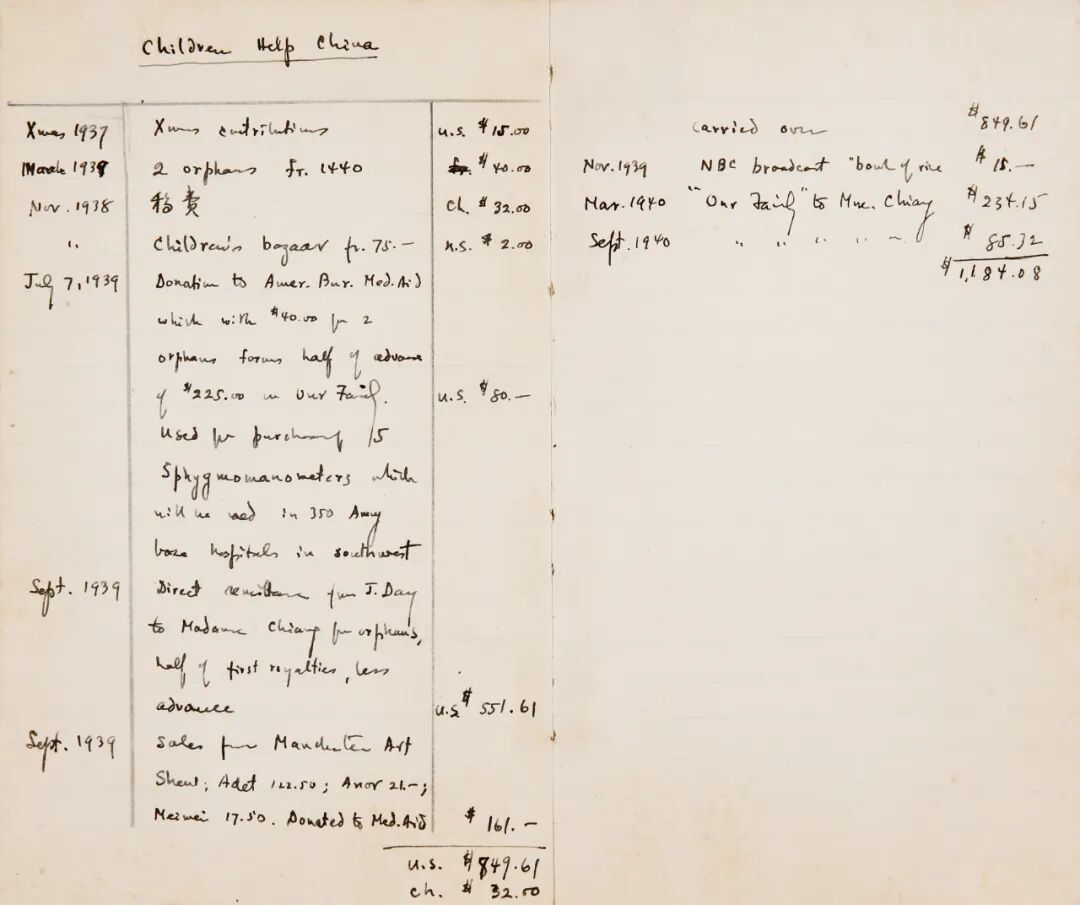 Children Help China
Xmas 1937 Xmas contributions U.S. $15.00
March 1938 2 orphans fr. 1440 $40.00
Nov. 1938 稿費 Ch. $32.00
" Children's bazaar fr. 75.— U.S. $2.00
July 7, 1939 Donation to Amer. Bur. Med. Aid
which with $40.00 for 2
orphans forms half of advance
of $225.00 on Our Family. U.S. $80.—
Used for purchase of 15
Sphygmomanometers which
will be used in 350 Army
base hospitals in southwest
Sept. 1939 Direct remittance from J. Day
to Madame Chiang for orphans,
half of first royalties, less
advance U.S $551.61
Sept. 1939 Sales from Manchester Art
Show; Adet 122.50; Anor 21.—;
Meimei 17.50. Donated to Med. Aid $161.—
U.S. $849.61
Ch. $32.00
carried over $849.61
Nov. 1939 NBC broadcast "bowl of rice $15.—
Mar. 1940 "Our Family" to Mme. Chiang $234.15
Sept. 1940 " " " " ~ $85.32
$1,184.08